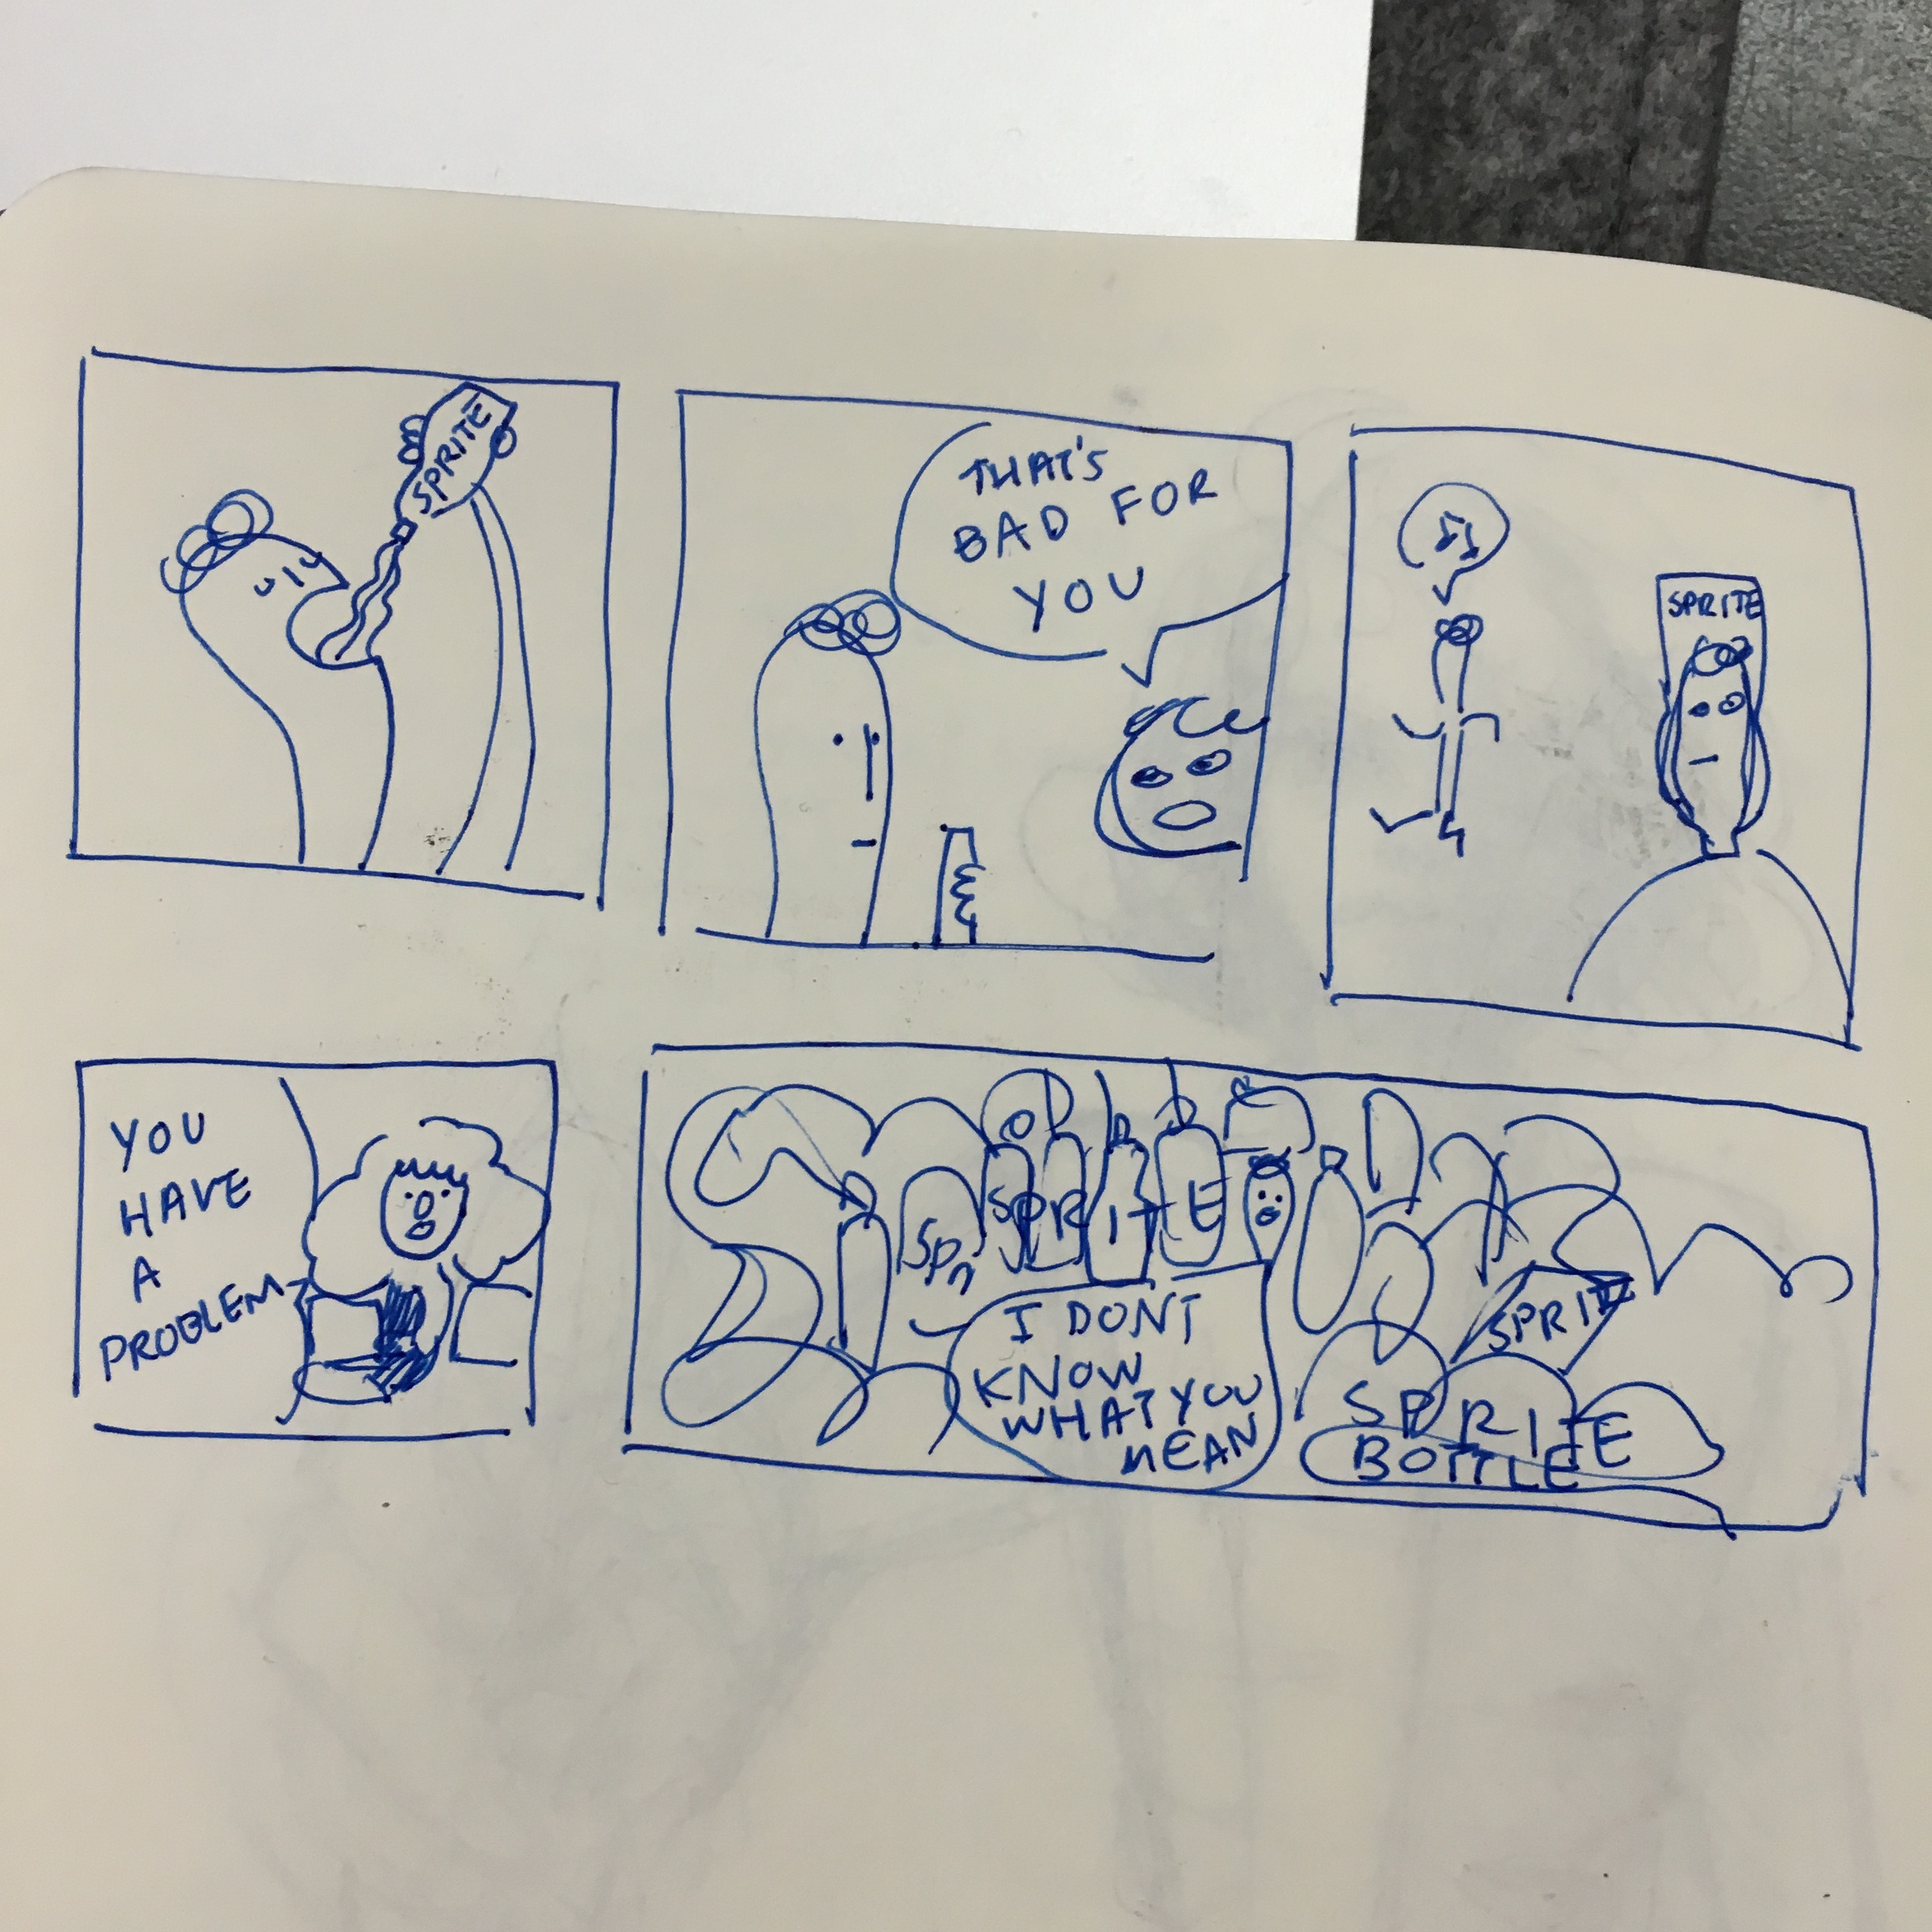 SPRITE
THAT'S
BAD FOR
YOU
SPRITE
YOU
HAVE
A
PROBLEM
Spr
SPRITE
I DONT
KNOW
WHAT YOU
MEAN
SPRITE
SPRITE
BOTTLE